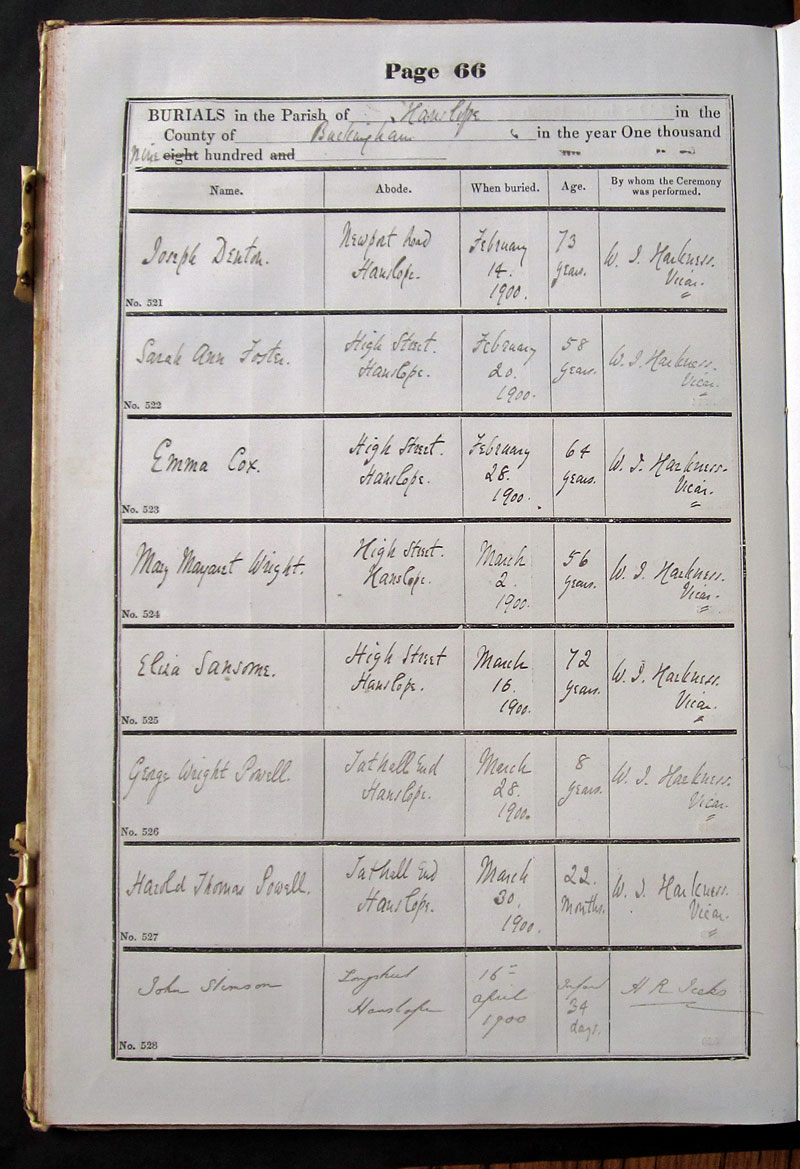 Page 66
BURIALS in the Parish of Hanslope in the
County of Buckingham in the year One thousand
nine eight hundred and
Name. Abode. When buried. Age. By whom the Ceremony was performed.
Joseph Denton. Newport Road Hanslope. February 14. 1900. 73 years. W. J. Harkness. Vicar.
No. 521
Sarah Ann Foster. High Street. Hanslope. February 20. 1900. 58 years. W. J. Harkness. Vicar.
No. 522
Emma Cox. High Street. Hanslope. February 28. 1900. 64 years. W. J. Harkness. Vicar.
No. 523
Mary Margaret Wright. High Street. Hanslope. March 2. 1900. 56 years. W. J. Harkness. Vicar.
No. 524
Eliza Sansome. High Street Hanslope. March 16. 1900. 72 years. W. J. Harkness. Vicar.
No. 525
George Wright Powell. Tathall End Hanslope. March 28. 1900. 8 years. W. J. Harkness. Vicar.
No. 526
Harold Thomas Powell. Tathall End Hanslope. March 30. 1900. 22. Months. W. J. Harkness. Vicar.
No. 527
John Stimson Hanslope 16 April 1900 Infant 34 days. H R
No. 528